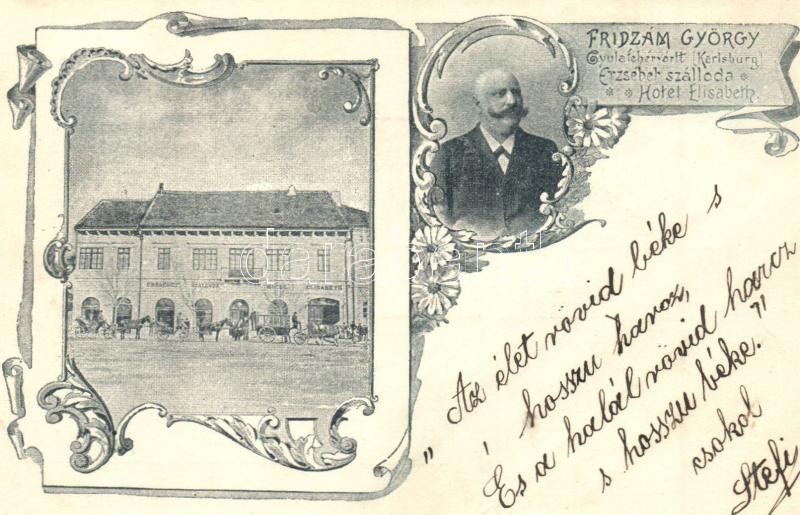 FRIDZÁM GYÖRGY
Gyulafehérvártt (Karlsburg)
Erzsébet szálloda
Hotel Elisabeth.
ERZSÉBET SZÁLLODA HOTEL ELISABETH
"Az élet rövid béke s
hosszu harcz,
És a halál rövid harcz
s hosszu béke."
csokol
Stefi